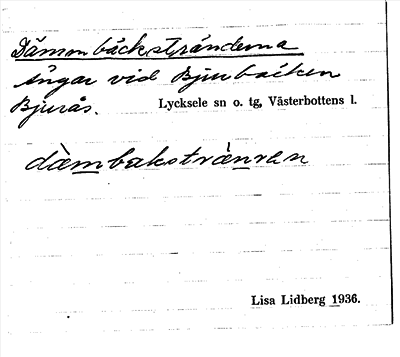 Dämmbäckstränderna
ängar vid Bjurbäcken
Bjurås. Lycksele sn o. tg, Västerbottens l.
dàmbakstrànren
Lisa Lidberg 1936.